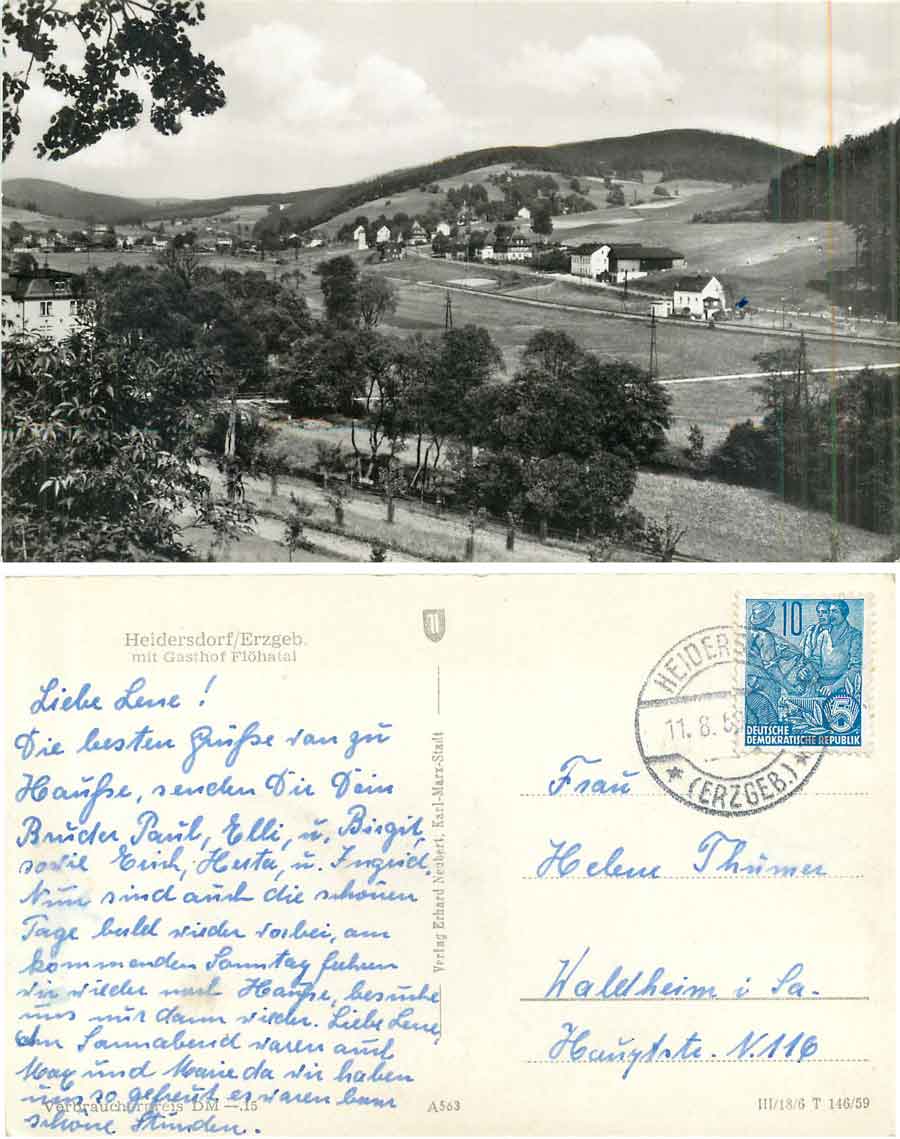 Heidersdorf/Erzgeb.
mit Gasthof Flöhatal
Liebe Lene!
Die besten Grüße von zu
Hauſse, senden Dir Dein
Bruder Paul, Elli, u. Birgit,
sowie Erich, Herta, u. Ingrid.
Nun sind auch die schönen
Tage bald wieder vorbei, am
kommenden Sonntag fahren
wir wieder nach Hauſse, besuche
uns nur dann wieder. Liebe Lene
am Sonnabend waren auch
Max und Marie da wir haben
uns so gefreut es waren
schöne Stunden.
Verbraucherpreis DM —.15
A563
Verlag Erhard Neubert, Karl-Marx-Stadt
HEIDERS
11. 8. 5
(ERZGEB.)
10
5
DEUTSCHE
DEMOKRATISCHE REPUBLIK
Frau
Helene Thümer
Waldheim i Sa.
Hauptstr. N. 116
III/18/6 T 146/59